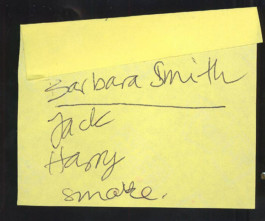 Barbara Smith
Jack
Harry
smoke.